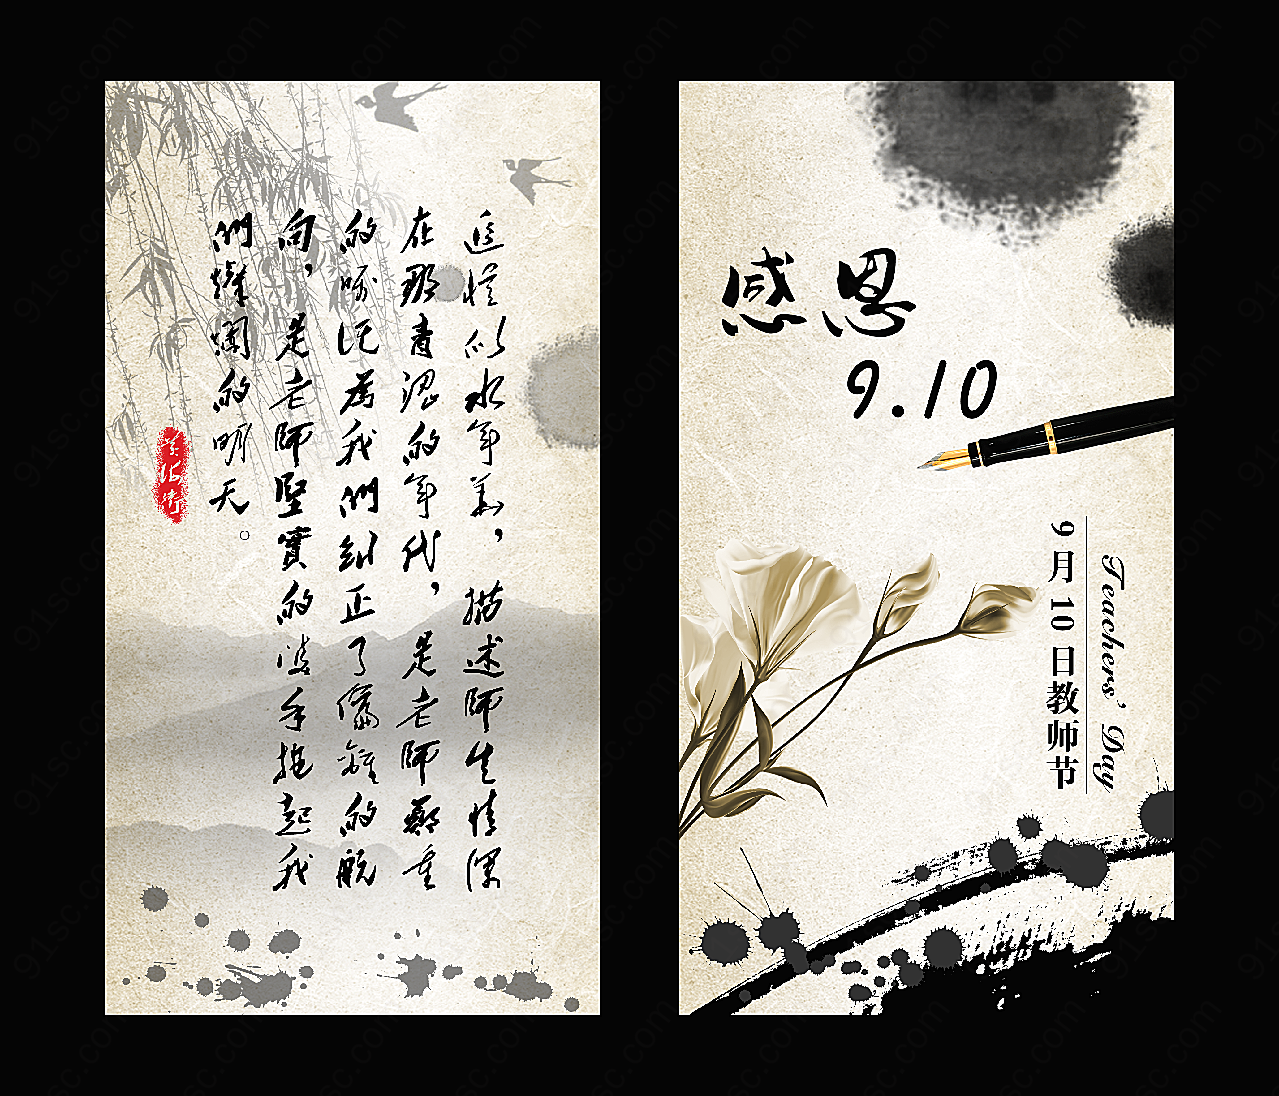 追憶似水年華，描述師生情深
在那青澀的年代，是老師鄭重
的為我們糾正了偏離的航
向，是老師堅實的手起我
們燦爛的明天。
感恩
9.10
9月10日教师节
Teachers' Day
91sc.com